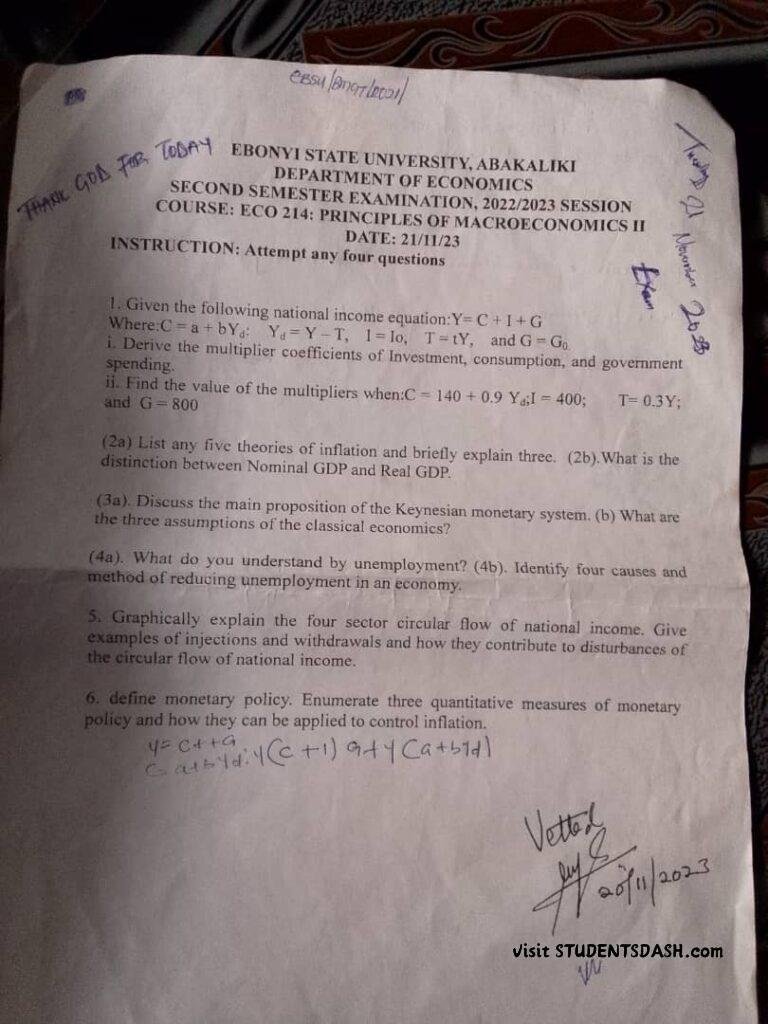 EBSU/BMGT/2021/
THANK GOD FOR TODAY
Tuesday 21 November 2023
Exam
EBONYI STATE UNIVERSITY, ABAKALIKI
DEPARTMENT OF ECONOMICS
SECOND SEMESTER EXAMINATION, 2022/2023 SESSION
COURSE: ECO 214: PRINCIPLES OF MACROECONOMICS II
DATE: 21/11/23
INSTRUCTION: Attempt any four questions
1. Given the following national income equation:Y= C + I + G
Where:C = a + bYd: Yd = Y – T, I = Io, T = tY, and G = G0.
i. Derive the multiplier coefficients of Investment, consumption, and government
spending.
ii. Find the value of the multipliers when:C = 140 + 0.9 Yd;I = 400; T= 0.3Y;
and G = 800
(2a) List any five theories of inflation and briefly explain three. (2b).What is the
distinction between Nominal GDP and Real GDP.
(3a). Discuss the main proposition of the Keynesian monetary system. (b) What are
the three assumptions of the classical economics?
(4a). What do you understand by unemployment? (4b). Identify four causes and
method of reducing unemployment in an economy.
5. Graphically explain the four sector circular flow of national income. Give
examples of injections and withdrawals and how they contribute to disturbances of
the circular flow of national income.
6. define monetary policy. Enumerate three quantitative measures of monetary
policy and how they can be applied to control inflation.
Y= C++G
C= a+bYd: Y(C+1) G+Y(a+bYd)
Vetted
20/11/2023
visit STUDENTSDASH.com